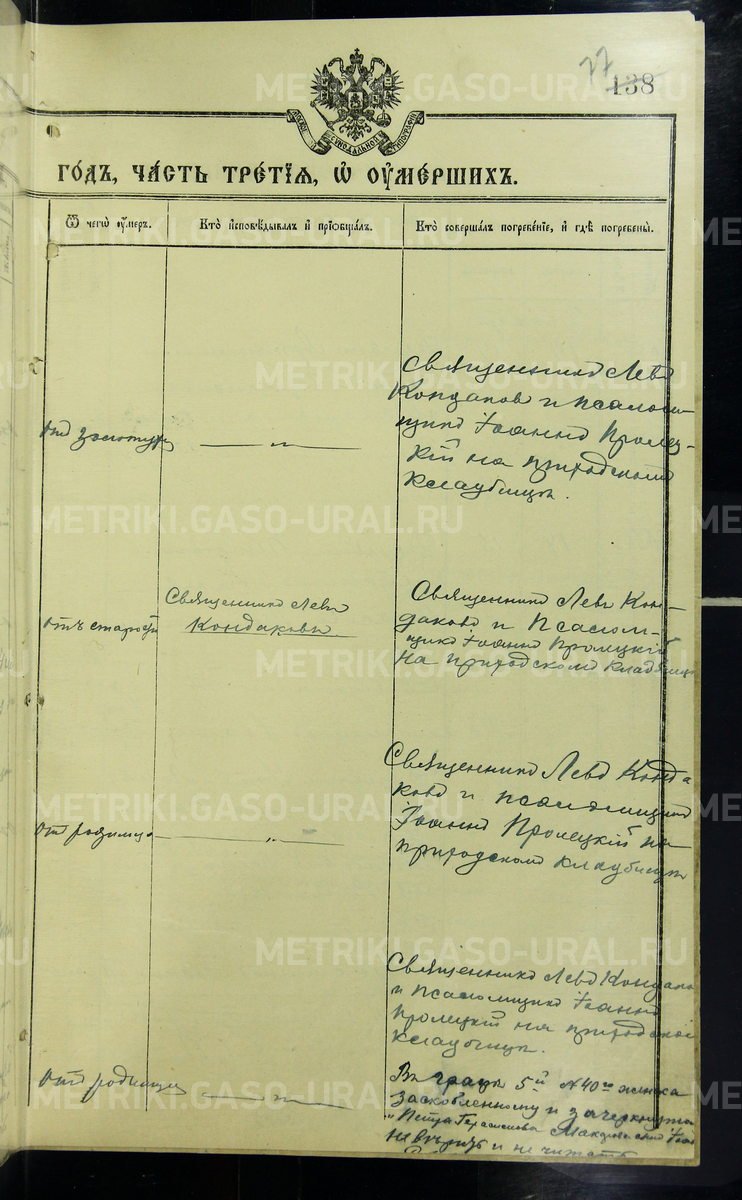 77
138
МОСКОВ. СИНОДАЛЬНОЙ ТИПОГРАФІИ
ГО́ДЪ, ЧА́СТЬ ТРЕ́ТІѦ, Ѽ ОУ҆МЕ́РШИХЪ.
Ѿ чегѡ̀ ᲂу҆́меръ.
Кто̀ и҆сповѣ́дывалъ и҆ прїѡбща́лъ.
Кто̀ соверша́лъ погребе́нїе, и҆ гдѣ̀ погребены̀.
Священникъ Левъ
Кондаков и псалом-
щикъ Іоаннъ Пролец-
кій на приходскомъ
кладбищѣ.
отъ
— „ —
Священникъ Левъ
Кондаковъ
отъ старости
Священникъ Левъ Кон-
даковъ и Псалом-
щикъ Іоаннъ Пролецкій
на приходскомъ кладбищѣ
Священникъ Левъ Конда
ковъ и псаломщикъ
Іоаннъ Пролецкій на
приходскомъ кладбищѣ
отъ родимца
— „ —
Священникъ Левъ Кондаковъ
и Псаломщикъ Іоаннъ
Пролецкій на приходскомъ
кладбищѣ.
отъ родимца
— „ —
Въ графѣ 5й №40го
и зачеркнутому
„Петра Герасимова
не вѣрить и не читать
METRIKI.GASO-URAL.RU